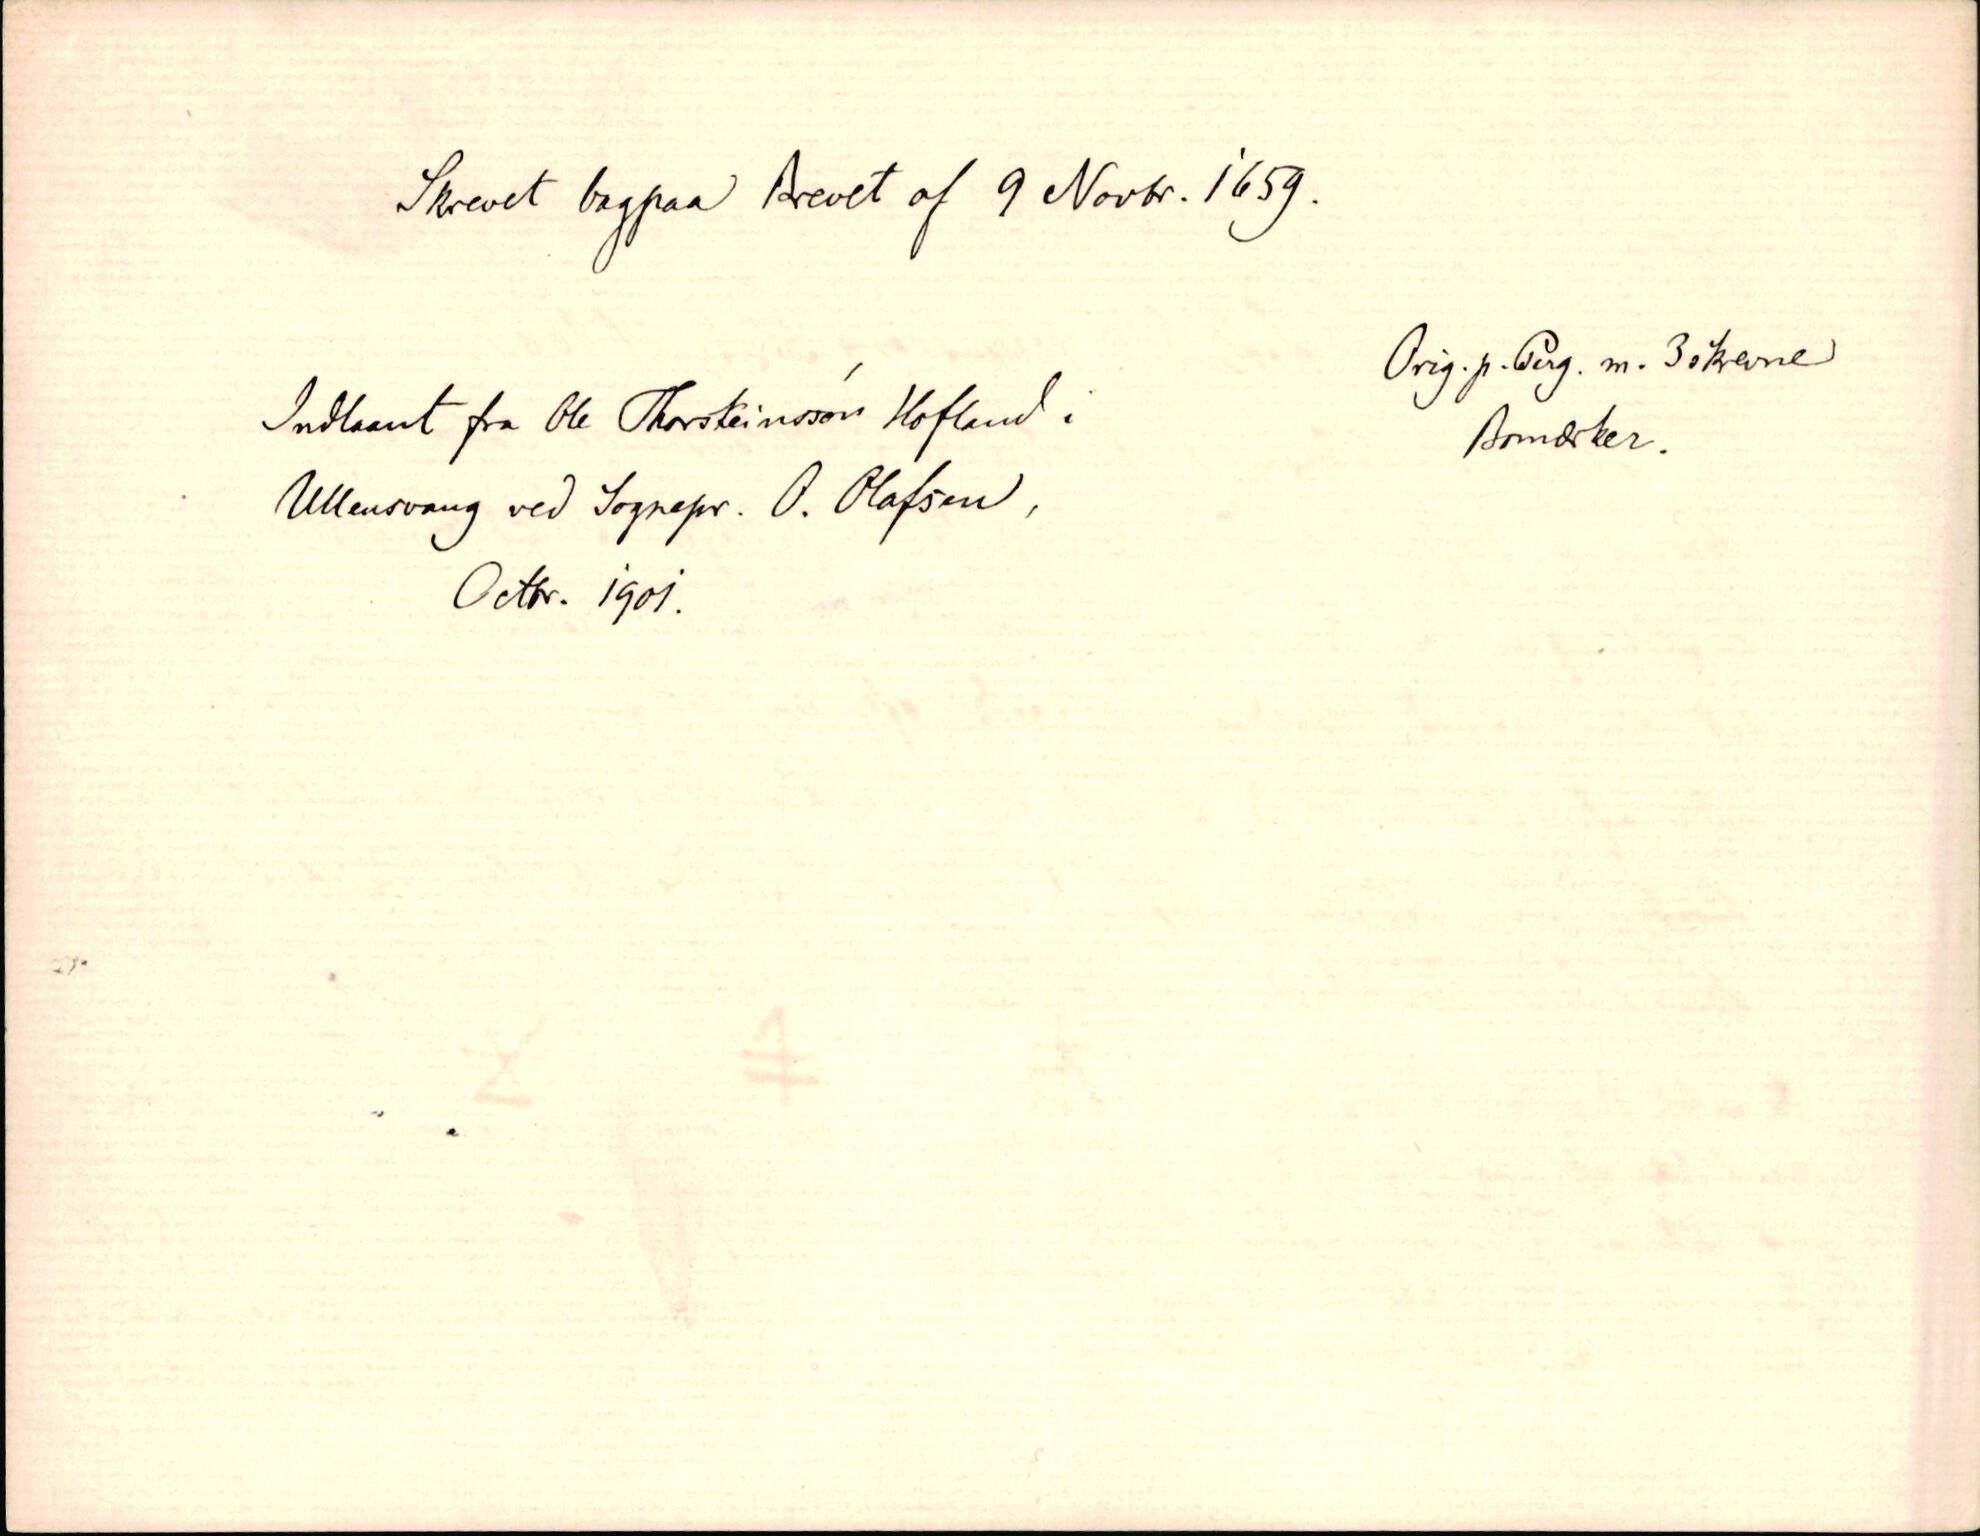 Skrevet bagpaa Brevet af 9 Novbr. 1659.
Indlaant fra Ole Thorsteinssøn Hofland i
Ullensvang ved Sognepr. O. Olafsen,
Octbr. 1901.
Orig. p. Perg. m. 3 skrevne
Bomærker.